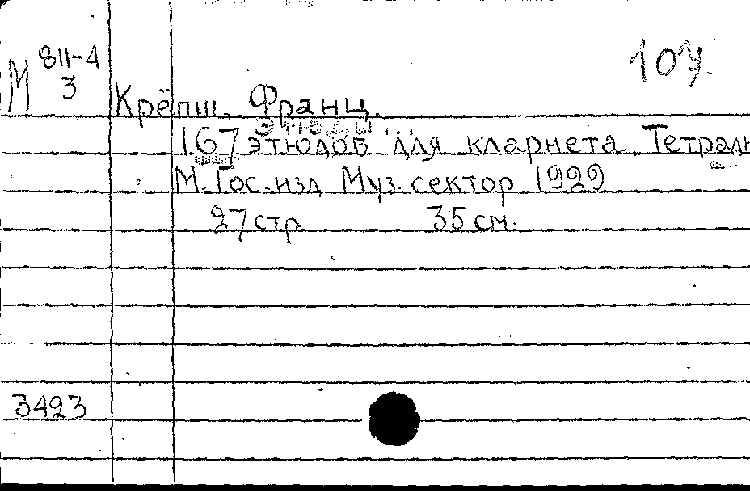 М 811-4
3
107.
Крёпш, Франц.
167 этюдов для кларнета Тетрадь
М. Гос. изд Муз. сектор 1929
27 стр 35 см.
3423